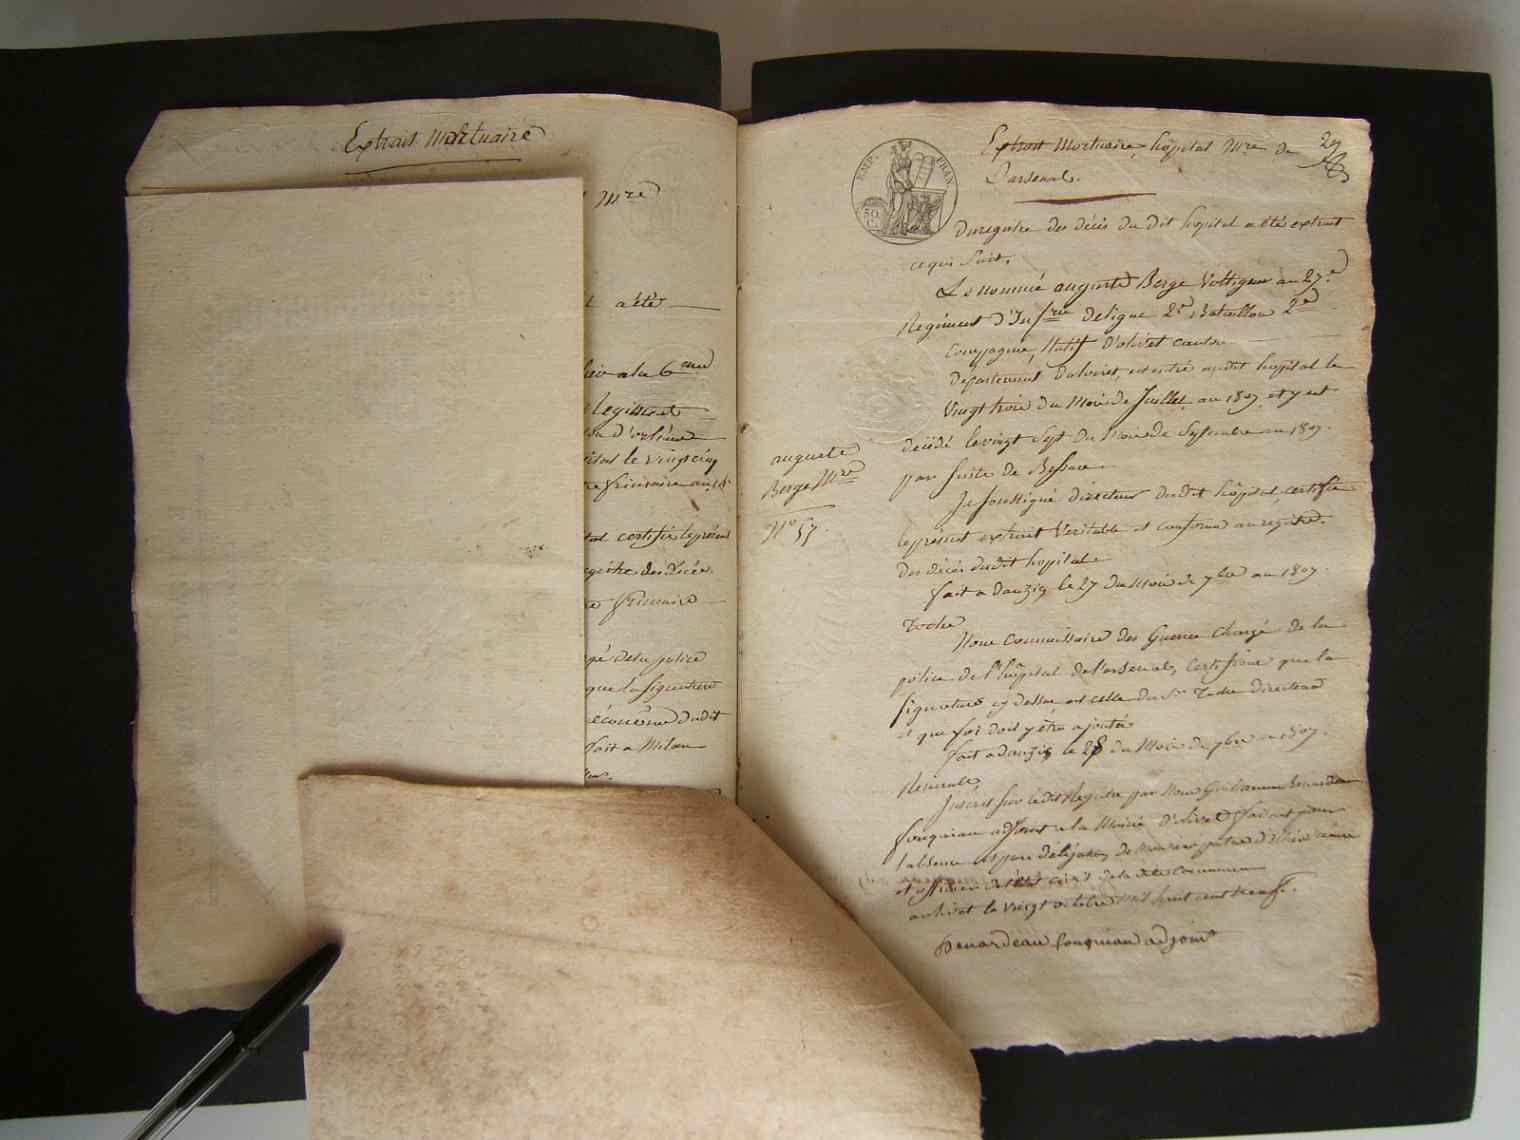 Extrait Mortuaire
Mre
a été
a la 6eme
Regiment
d'orléans
le vingt cinq
frimaire
certifie le présent
des décés
frimaire
de la police
que la signature
dudit
fait a Milan
EMP. FRAN.
Extrait Mortuaire, hôpital Mre de
L'arsenal.
29
Du registre des décés du dit hopital a été extrait
ce qui suit.
Le nommé auguste Berge Voltigeur au 27.e
Regiment d'Infrie de ligne 2e Bataillon 2e
Compagnie, Natif D'olivet canton
département du loiret, est entré audit hopital le
Vingt trois du Mois de Juillet an 1807 et y est
décédé le vingt Sept du Mois de Septembre an 1807.
par suite de
auguste
Berge Mre
N° 57.
Je soussigné directeur du dit hôpital, certifie
le présent extrait Véritable et conforme au registre
des décés du dit hopital
fait a Danzig le 27 du Mois de 7bre an 1807.
Nous Commissaire des Guerres chargé de la
police de l'hôpital de l'arsenal, certifions que la
signature cy dessus est celle du Sr directeur
et que foi doit y être ajoutée
fait a danzig le 28 du Mois de 7bre an 1807.
Inscrit sur le dit Registre par Nous Guillaume
fouqueau adjoint a la Mairie D'olivet faisant pour
l'absence et par délégation de Monsieur
et officier de l'état civil de la dite Commune
a olivet le vingt octobre mil huit cent neuf.
fouqueau adjoint